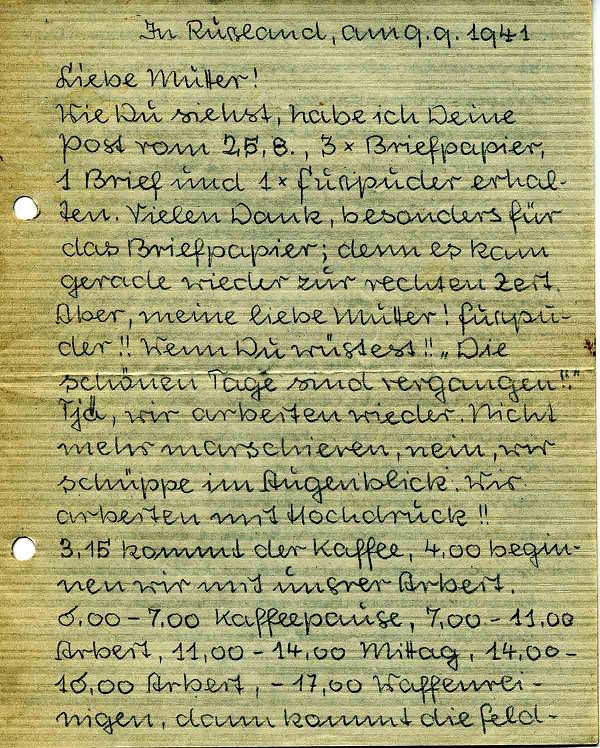 In Rußland, am 9.9.1941
Liebe Mutter!
Wie Du siehst, habe ich Deine
Post vom 25.8., 3 x Briefpapier,
1 Brief und 1 x Fußpuder erhal-
ten. Vielen Dank, besonders für
das Briefpapier; denn es kam
gerade wieder zur rechten Zeit.
Aber, meine liebe Mutter! Fußpu-
der!! Wenn Du wüßtest!! „Die
schönen Tage sind vergangen!!“
Tja, wir arbeiten wieder. Nicht
mehr marschieren, nein, wir
schüppe im Augenblick. Wir
arbeiten mit Hochdruck!!
3,15 kommt der Kaffee, 4,00 begin-
nen wir mit unsrer Arbeit.
6,00 – 7,00 Kaffeepause, 7,00 – 11,00
Arbeit, 11,00 – 14,00 Mittag, 14,00 –
16,00 Arbeit, – 17,00 Waffenrei-
nigen, dann kommt die Feld-